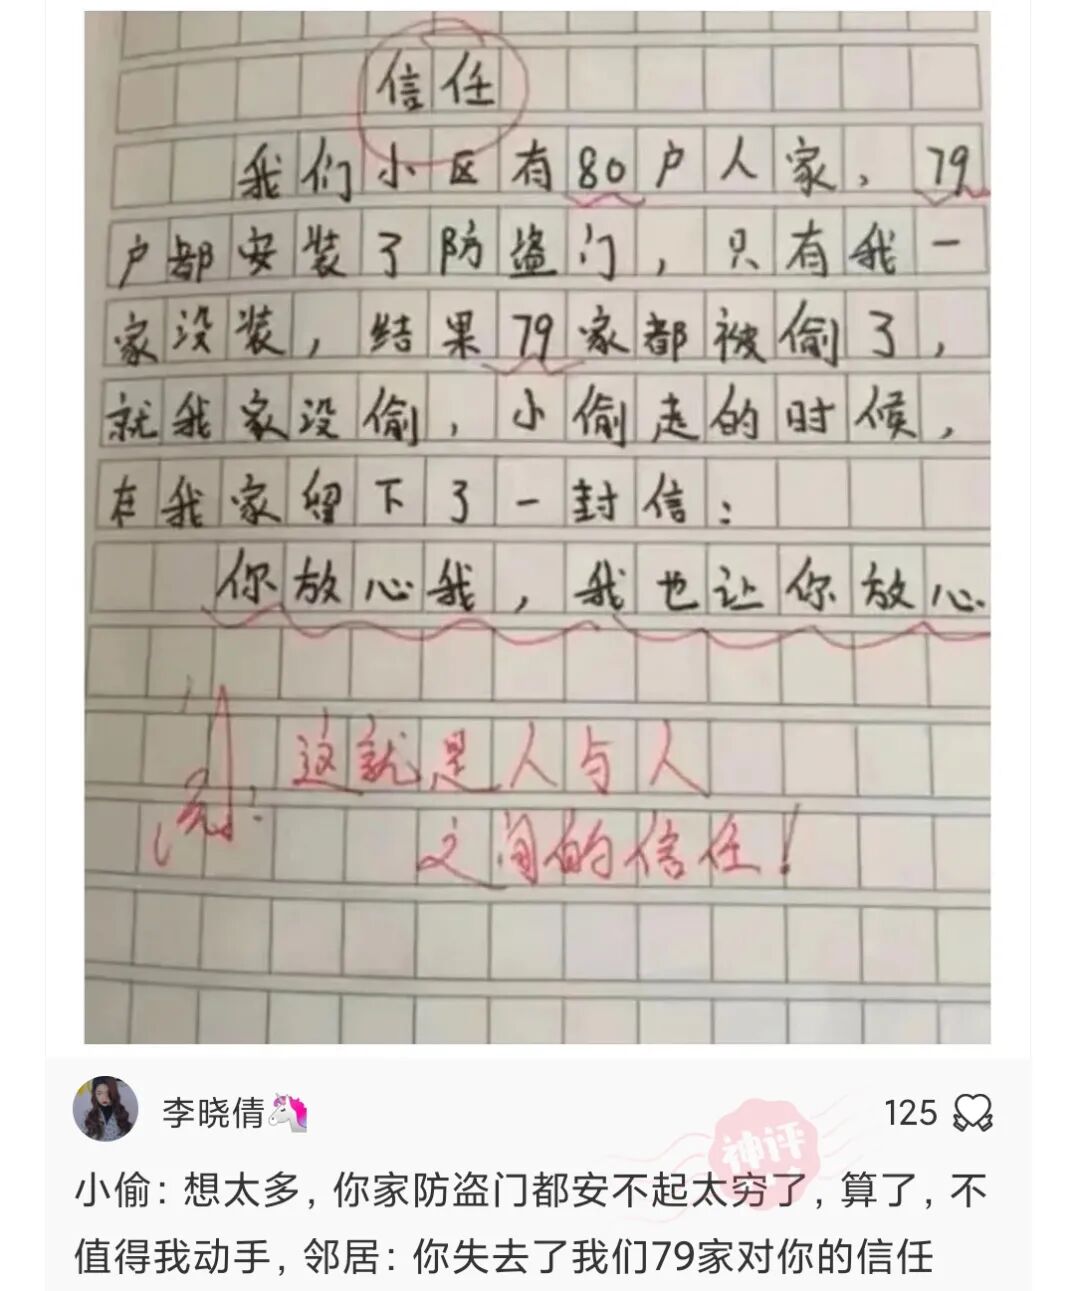 信任
我们小区有80户人家，79
户都安装了防盗门，只有我一
家没装，结果79家都被偷了，
就我家没偷，小偷走的时候，
在我家留下了一封信：
你放心我，我也让你放心.
这就是人与人
之间的信任！
李晓倩
125
神评
小偷：想太多，你家防盗门都安不起太穷了，算了，不
值得我动手，邻居：你失去了我们79家对你的信任